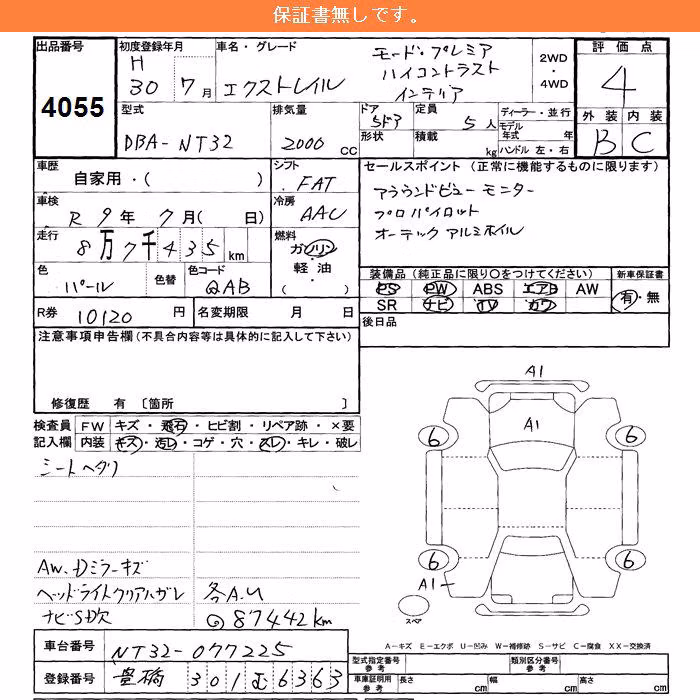 保証書無しです。
出品番号
4055
初度登録年月
H
30 7月
車名・グレード
エクストレイル
モード・プレミア
ハイコントラスト
インテリア
2WD
・
4WD
評価点
4
外装 内装
B C
型式
DBA-NT32
排気量
2000 CC
ドア
5ドア
形状
定員
5人
積載
kg
ディーラー・並行
モデル年式 年
ハンドル 左・右
車歴
自家用・( )
シフト
FAT
車検
R 9年 7月( 日)
冷房
AAC
走行
8万7千435km
燃料
ガソリン
軽油
( )
色
パール
色替
色コード
QAB
セールスポイント (正常に機能するものに限ります)
アラウンドビューモニター
プロパイロット
オーテックアルミホイル
装備品 (純正品に限り○をつけてください)
PS PW ABS エアB AW
SR ナビ TV カワ
新車保証書
有・無
R券 10120 円
名変期限 月 日
後日品
注意事項申告欄 (不具合内容等は具体的に記入して下さい)
修復歴 有 〔箇所 〕
検査員記入欄
FW キズ・飛石・ヒビ割・リペア跡・×要
内装 キズ・汚レ・コゲ・穴・スレ・キレ・破レ
シートヘタリ
AW.Dミラーキズ
ヘッドライトクリアハガレ
ナビSD欠
各A.U
87442km
A1
A1
6 6
6 6
A1
スペア
A-キズ E-エクボ U-凹み W-補修跡 S-サビ C-腐食 XX-交換済
車台番号
NT32-077225
登録番号
豊橋 301 む 6363
型式指定番号 参考
類別区分番号 参考
車庫証明用 参考
長さ cm 幅 cm 高さ cm